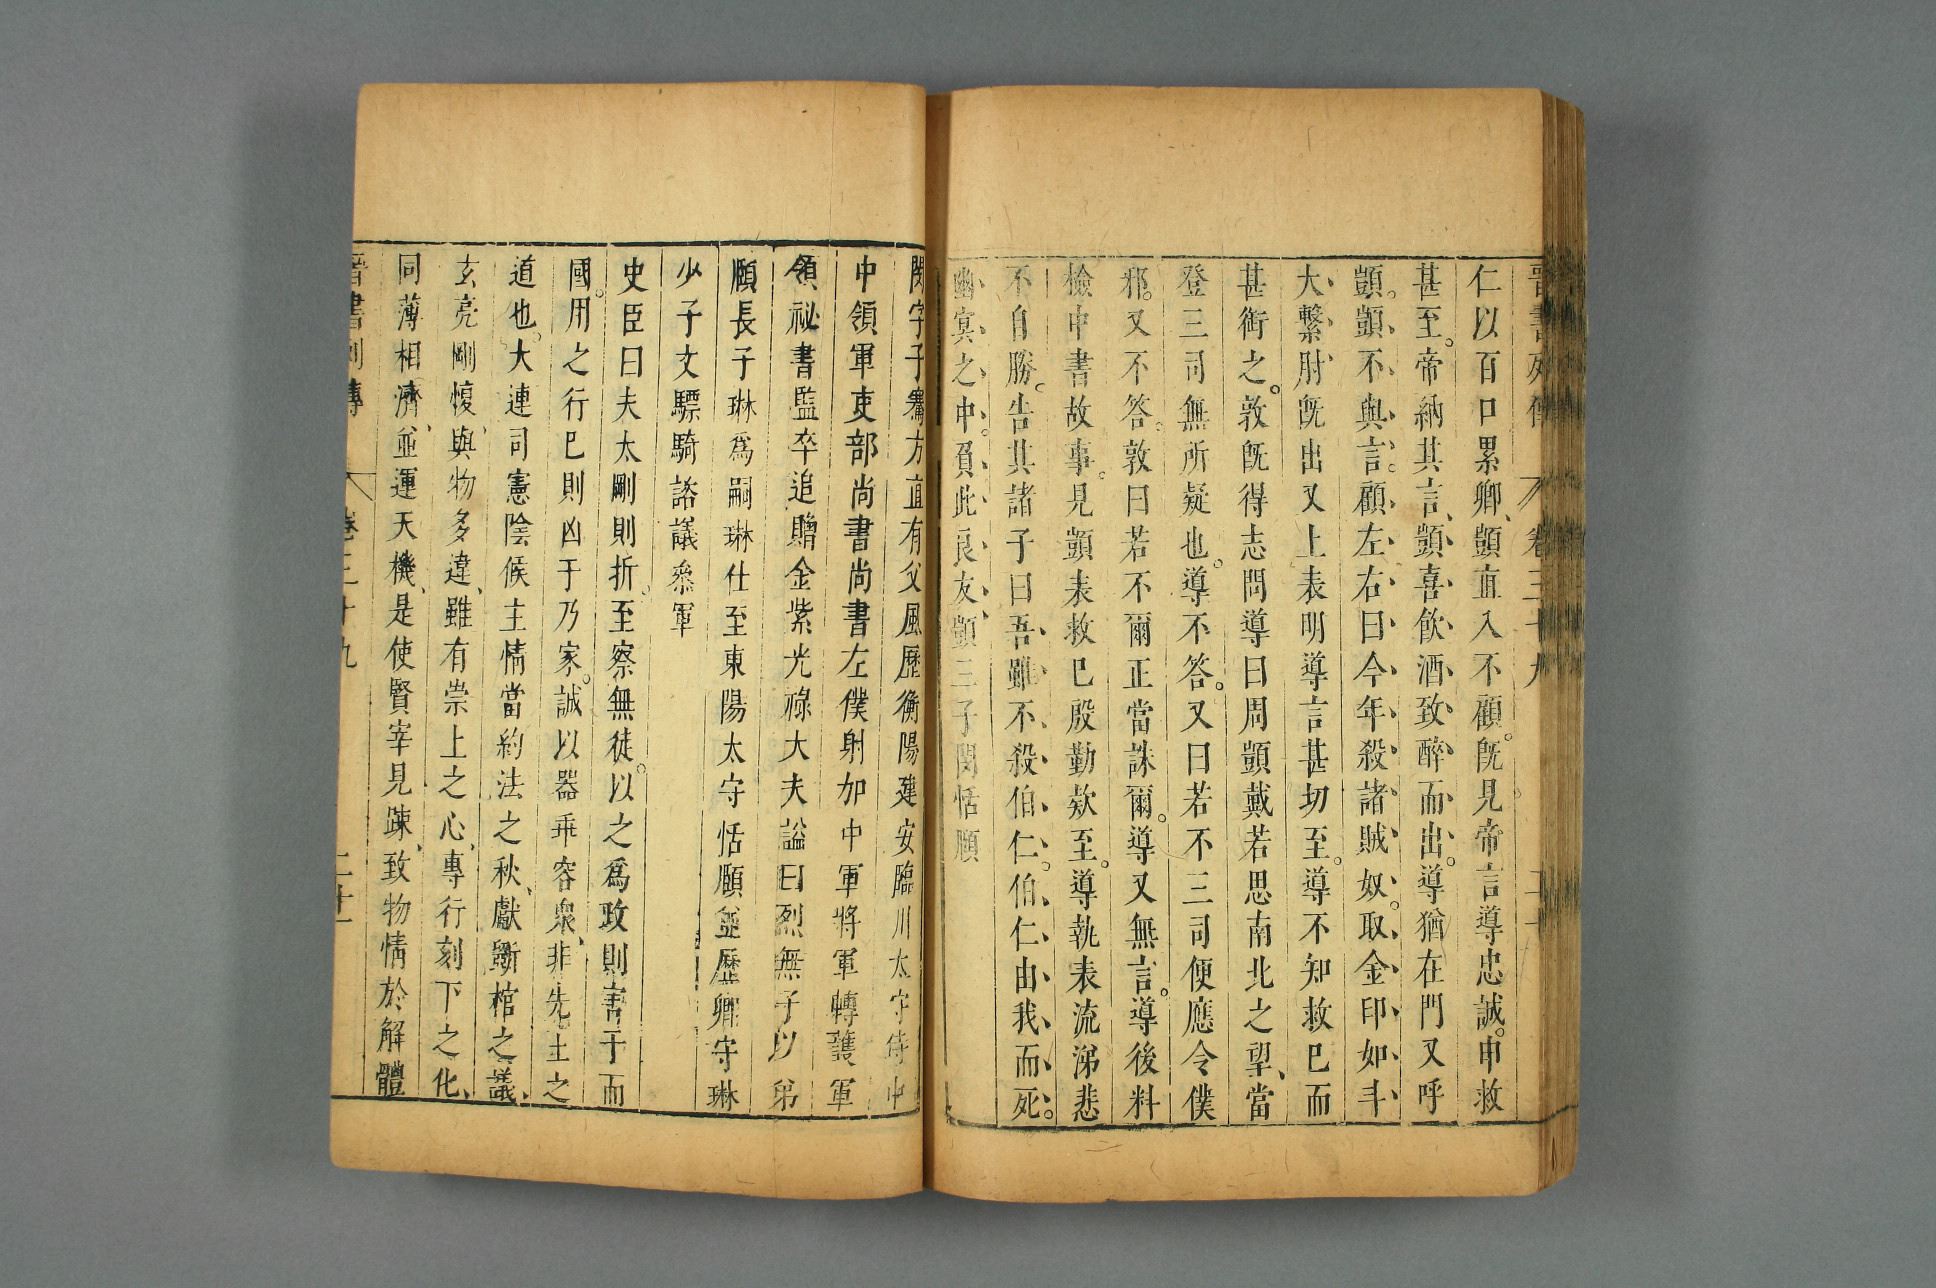 晉書列傳 卷三十九
仁以百口累卿、顗直入不顧。既見帝言導忠誠。申救
甚至。帝納其言、顗喜飲酒、致醉而出。導猶在門又呼
顗。顗不與言。顧左右曰今年殺諸賊奴。取金印如斗
大、繫肘既出又上表明導言甚切至。導不知救已而
甚銜之。敦既得志問導曰周顗戴若思南北之望、當
登三司無所疑也。導不答。又曰若不三司便應令僕
邪。又不答。敦曰若不爾正當誅爾。導又無言。導後料
檢中書故事。見顗表救已殷勤欵至。導執表流涕悲
不自勝。告其諸子曰吾雖不殺伯仁。伯仁由我而死。
幽冥之中。負此良友、顗三子閔恬頤
閔字子騫方直有父風歷衡陽建安臨川太守侍中
中領軍吏部尚書尚書左僕射加中軍將軍轉護軍
領祕書監卒追贈金紫光祿大夫謚曰烈無子以弟
頤長子琳爲嗣琳仕至東陽太守恬頤並歷卿守琳
少子文驃騎諮議叅軍
史臣曰夫太剛則折。至察無徒。以之爲政則害于而
國。用之行已則凶于乃家。誠以器乖容衆、非先王之
道也。大連司憲陰候主情當約法之秋、獻斵棺之議、
玄亮剛愎、與物多違、雖有崇上之心、專行刻下之化、
同薄相濟、並運天機、是使賢宰見踈、致物情於解體
晉書列傳 卷三十九 二十一